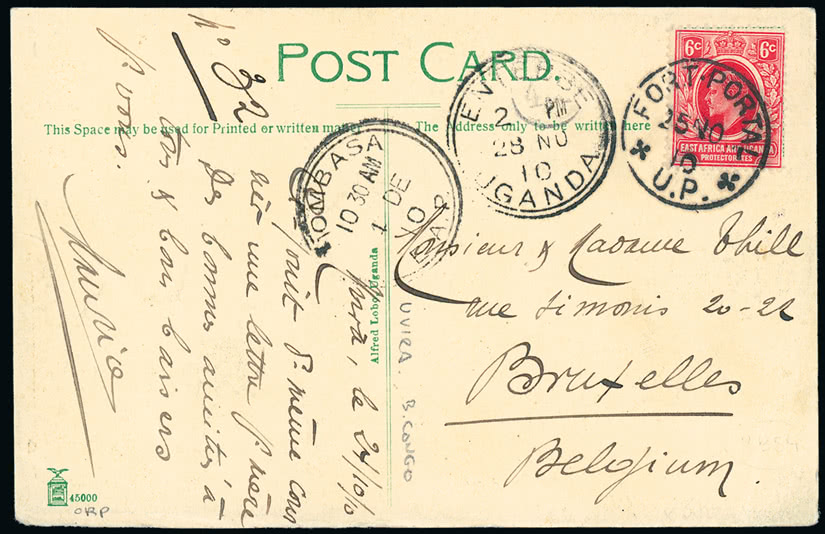 POST CARD.
This Space may be used for Printed or written matter
The Address only to be written here
6c 6c
EAST AFRICA AND UGANDA
PROTECTORATES
FORT PORTAL
25 NO
10
U.P.
ENTEBBE
2 PM
28 NO
10
UGANDA
MOMBASA
10 30 AM
1 DE
10
E.A.P.
Monsieur & Madame Thill
rue Simonis 20-22
Bruxelles
Belgium.
Alfred Lobo, Uganda
UVIRA. B. CONGO
No 32
le 24/10/10
joint d. même cour
une lettre p. mère
Des bonnes amitiés à
& bons baisers
p. vous.
Maurice
45000
ORP